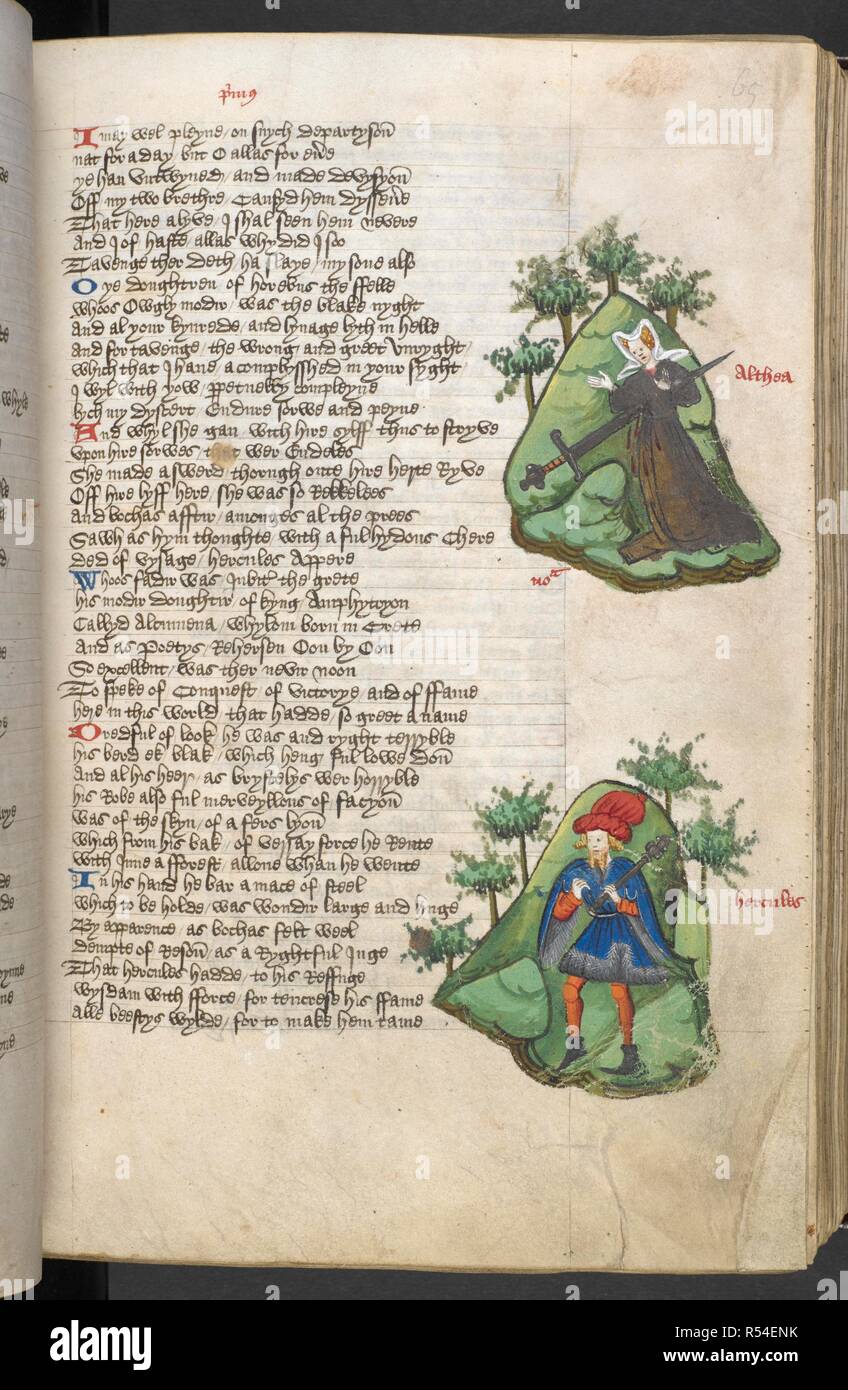 65
pmus
I may wel pleyne on such departysoun
nat for a day but O allas for evere
ye han untwyned and made devysyoun
Off my two brethre Causyd hem dyssevere
That here alyve I shal seen hem nevere
And I of haste allas why did I soo
Tavenge ther deth ha slaye my sone also
O ye doughtren of herebus the ffelle
whoos Owgly modir was the blake nyght
And al your kynrede and lynage lyth in helle
And for tavenge the wrong and greet unryght
which that I have accomplysshed in your syght
I wyl with yow perpetuelly compleyne
lych my dyssert Endure sorwe and peyne
And whyl she gan with hire sylff thus to stryve
upon hire sorwes that wer Endeles
She made a swerd thorugh oute hire herte Ryve
Off hire lyff here she was so Rekkelees
And bochas afftir amonges al the prees
Sawh as hym thoughte with a ful hydous Chere
ded of vysage hercules Appere
Whoos fadir was Jubiter the grete
his modir doughtir of kyng Amphytryon
Callyd Alcumena whylom born in Crete
And as Poetys Rehersen Oon by Oon
So excellent was ther nevir noon
To speke of Conquest of victorye and of ffame
here in this world that hadde so greet a name
Dredful of look he was and ryght terryble
his berd ek blak which heng ful lowe doun
And al his heer as brystelys wer horryble
his Robe also ful merveyllous of facyoun
was of the skyn of a fers lyoun
which from his bak of verray force he Rente
with Inne a fforest allone whan he wente
In his hand he bar a mace of steel
which to be holde was wondir large and huge
By apparence as bochas felt weel
dempte of Resoun as a Ryghtful Juge
That hercules hadde to his Reffuge
wysdam with fforce for tencrese his ffame
Alle beestys wylde for to make hem tame
Althea
not
hercules
alamy
Image ID: R54ENK
www.alamy.com